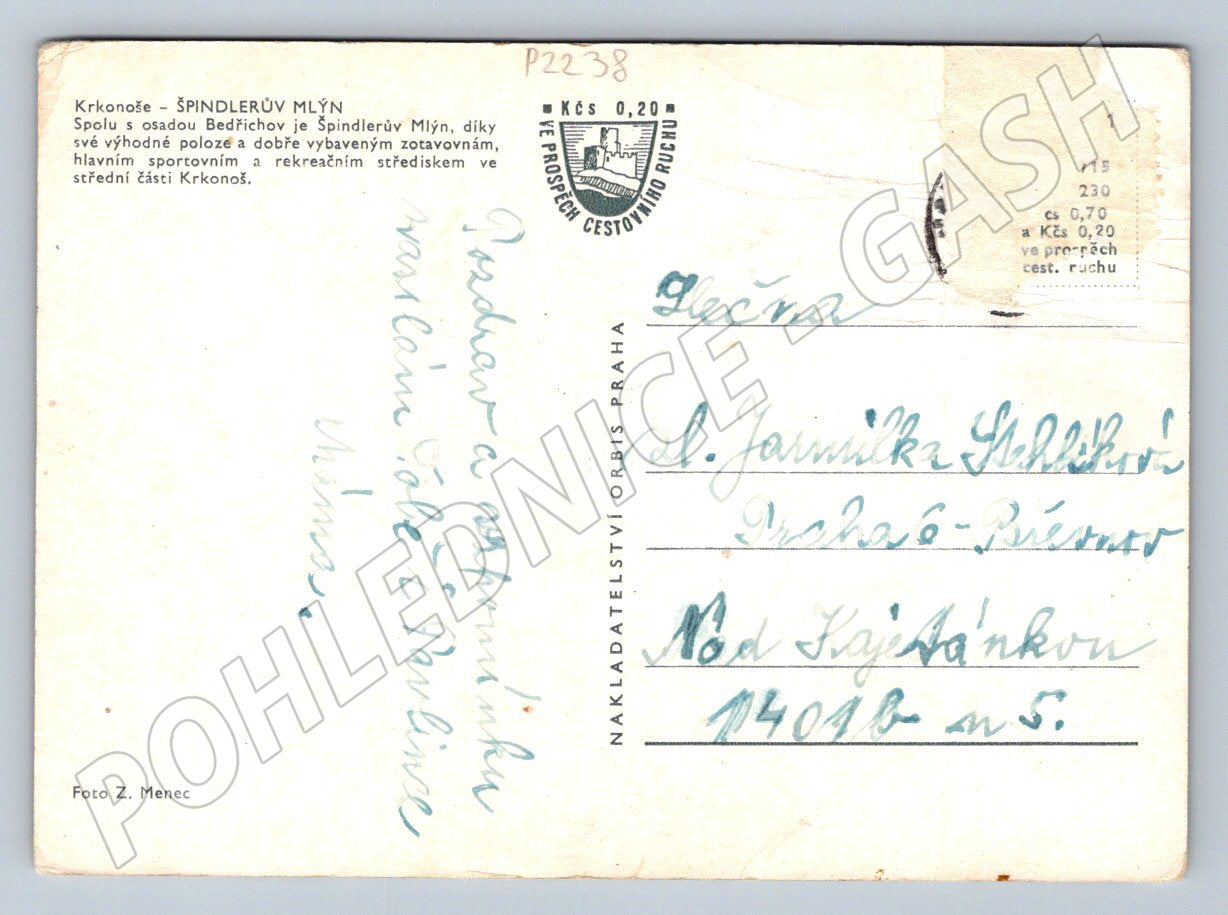 P2238
Krkonoše – ŠPINDLERŮV MLÝN
Spolu s osadou Bedřichov je Špindlerův Mlýn, díky
své výhodné poloze a dobře vybaveným zotavovnám,
hlavním sportovním a rekreačním střediskem ve
střední části Krkonoš.
Kčs 0,20
VE PROSPĚCH CESTOVNÍHO RUCHU
230
cs 0,70
a Kčs 0,20
ve prospěch
cest. ruchu
Pozdrav a vzpomínku
zasílám Tobě i Pavlince
Máma.
NAKLADATELSTVÍ ORBIS PRAHA
Slečna
sl. Jarmilka Stehlíková
Praha 6 - Břevnov
Nad Kajetánkou
1401b n 5.
Foto Z. Menec
POHLEDNICE - GASH